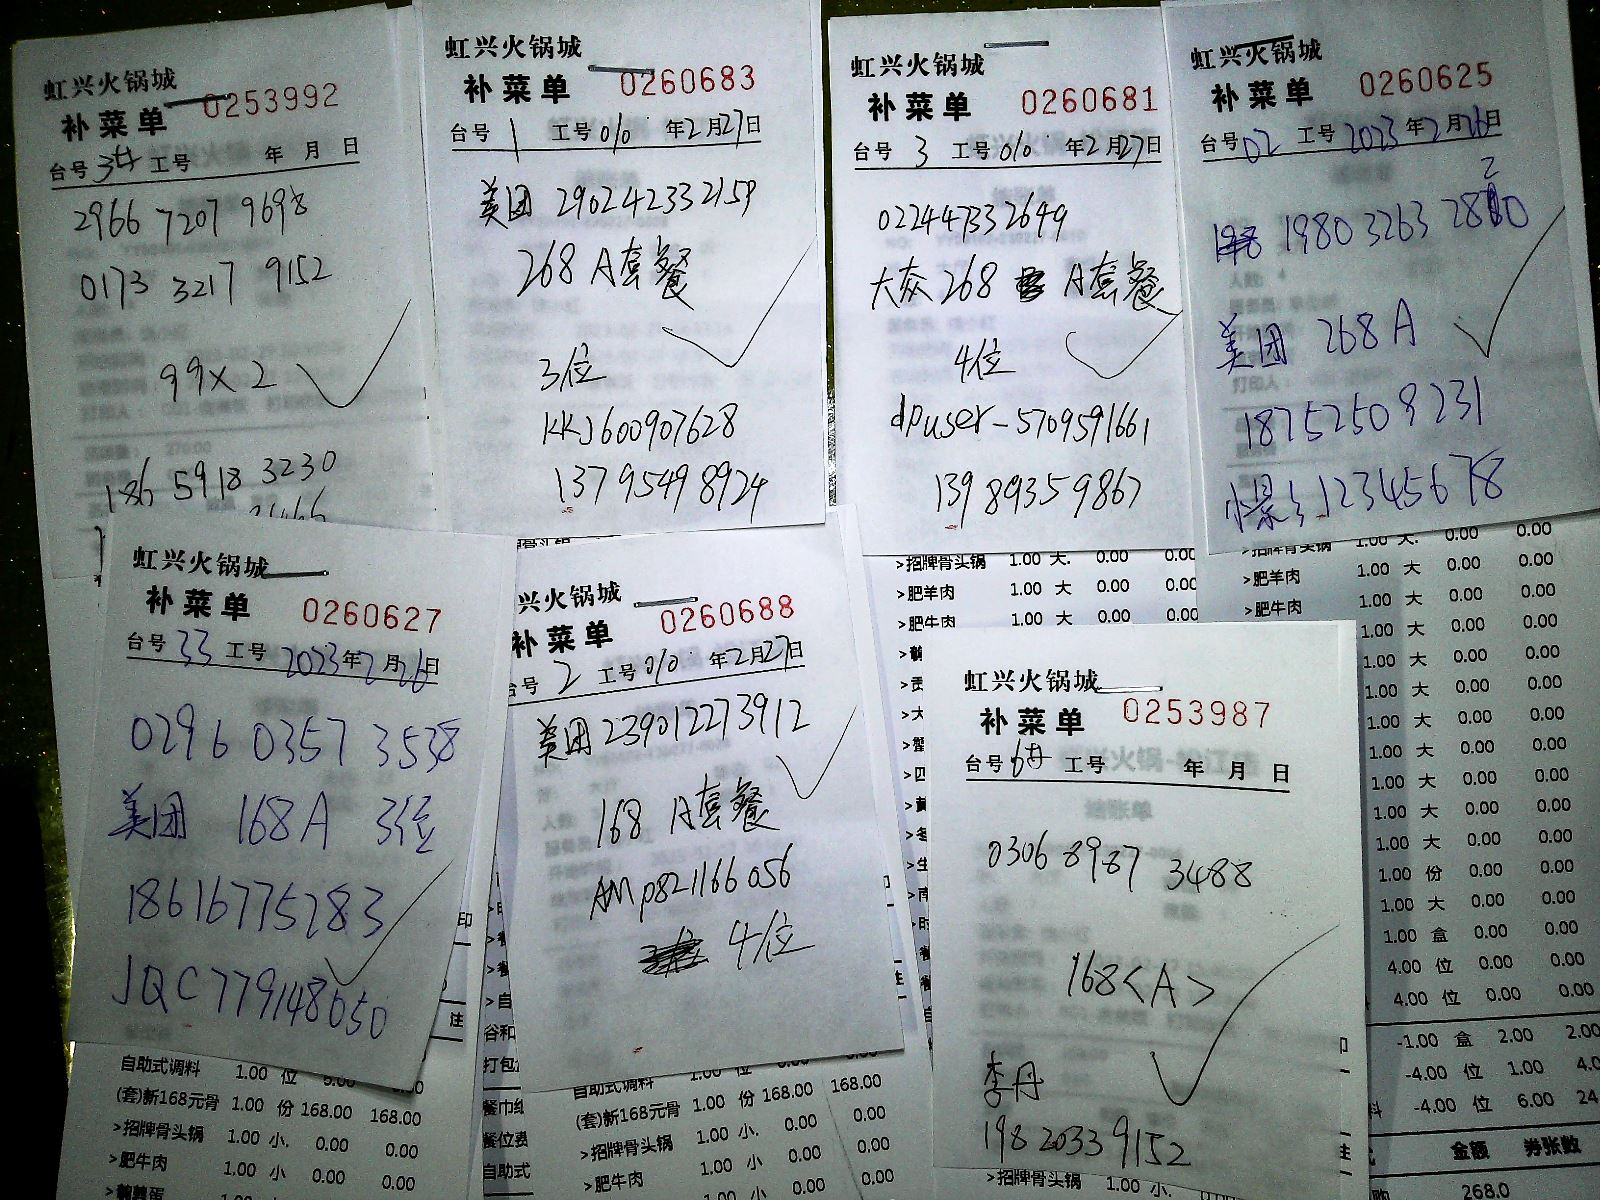 虹兴火锅城
补菜单 0253992
台号 3廿 工号 年 月 日
2966 7207 9698
0173 3217 9152
99×2
186 5918 3230
虹兴火锅城
补菜单 0260683
台号 1 工号 010 年2月27日
美团 290242332159
268 A套餐
3位
KKJ600907628
13795498924
虹兴火锅城
补菜单 0260681
台号 3 工号 010 年2月27日
022447332649
大众 268 A套餐
4位
dpuser-5709591661
13989359867
虹兴火锅城
补菜单 0260625
台号 02 工号 2023年2月26日
1980 3263 2820
美团 268A
18752509231
12345678
虹兴火锅城
补菜单 0260627
台号 33 工号 2023年2月26日
0296 0357 3538
美团 168A 3位
18616775283
JQC779148650
兴火锅城
补菜单 0260688
台号 2 工号 010 年2月27日
美团 239012273912
168 A套餐
AMp821166056
4位
虹兴火锅城
补菜单 0253987
台号 6廿 工号 年 月 日
0306 8987 3488
168<A>
李丹
198 2033 9152
自助式调料 1.00 位 5.00
(套)新168元骨 1.00 份 168.00 168.00
>招牌骨头锅 1.00 小. 0.00 0.00
>肥牛肉 1.00 小 0.00 0.00
自助式调料 1.00 位 0.00
(套)新168元骨 1.00 份 168.00 168.00
>招牌骨头锅 1.00 小. 0.00 0.00
>肥牛肉 1.00 小 0.00 0.00
>招牌骨头锅 1.00 大. 0.00 0.00
>肥羊肉 1.00 大 0.00 0.00
>肥牛肉 1.00 大 0.00 0.00
>招牌骨头锅 1.00 大. 0.00 0.00
>肥羊肉 1.00 大 0.00 0.00
>肥牛肉 1.00 大 0.00 0.00
1.00 大 0.00 0.00
1.00 大 0.00 0.00
1.00 大 0.00 0.00
1.00 大 0.00 0.00
1.00 大 0.00 0.00
1.00 大 0.00 0.00
1.00 大 0.00 0.00
1.00 大 0.00 0.00
1.00 份 0.00 0.00
1.00 大 0.00 0.00
1.00 盒 0.00 0.00
4.00 位 0.00 0.00
4.00 位 0.00 0.00
-1.00 盒 2.00 2.00
-4.00 位 1.00 4.0
-4.00 位 6.00 24
金额 券张数
268.0
>招牌骨头锅 1.00 小. 0.00